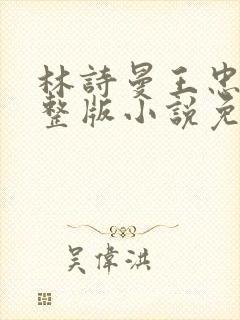 林詩曼王忠
整版小說免
吳偉洪